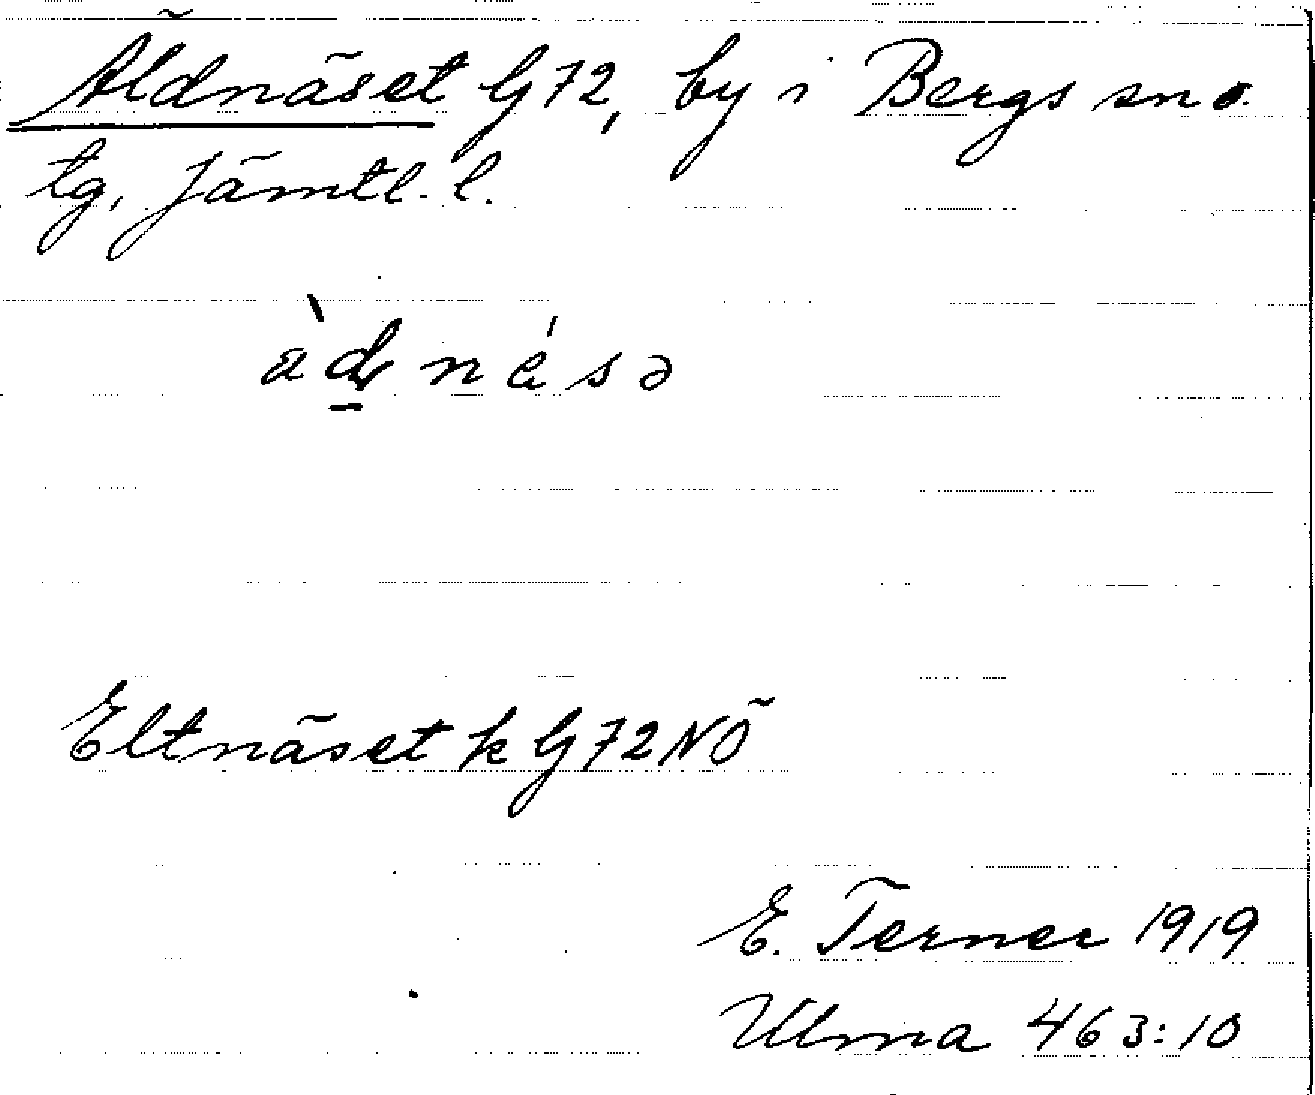 Äldnäset G72, by i Bergs sn o.
tg, Jämtl. l.
Eltnäset k G72NÖ
E. Terner 1919
Ulma 463:10